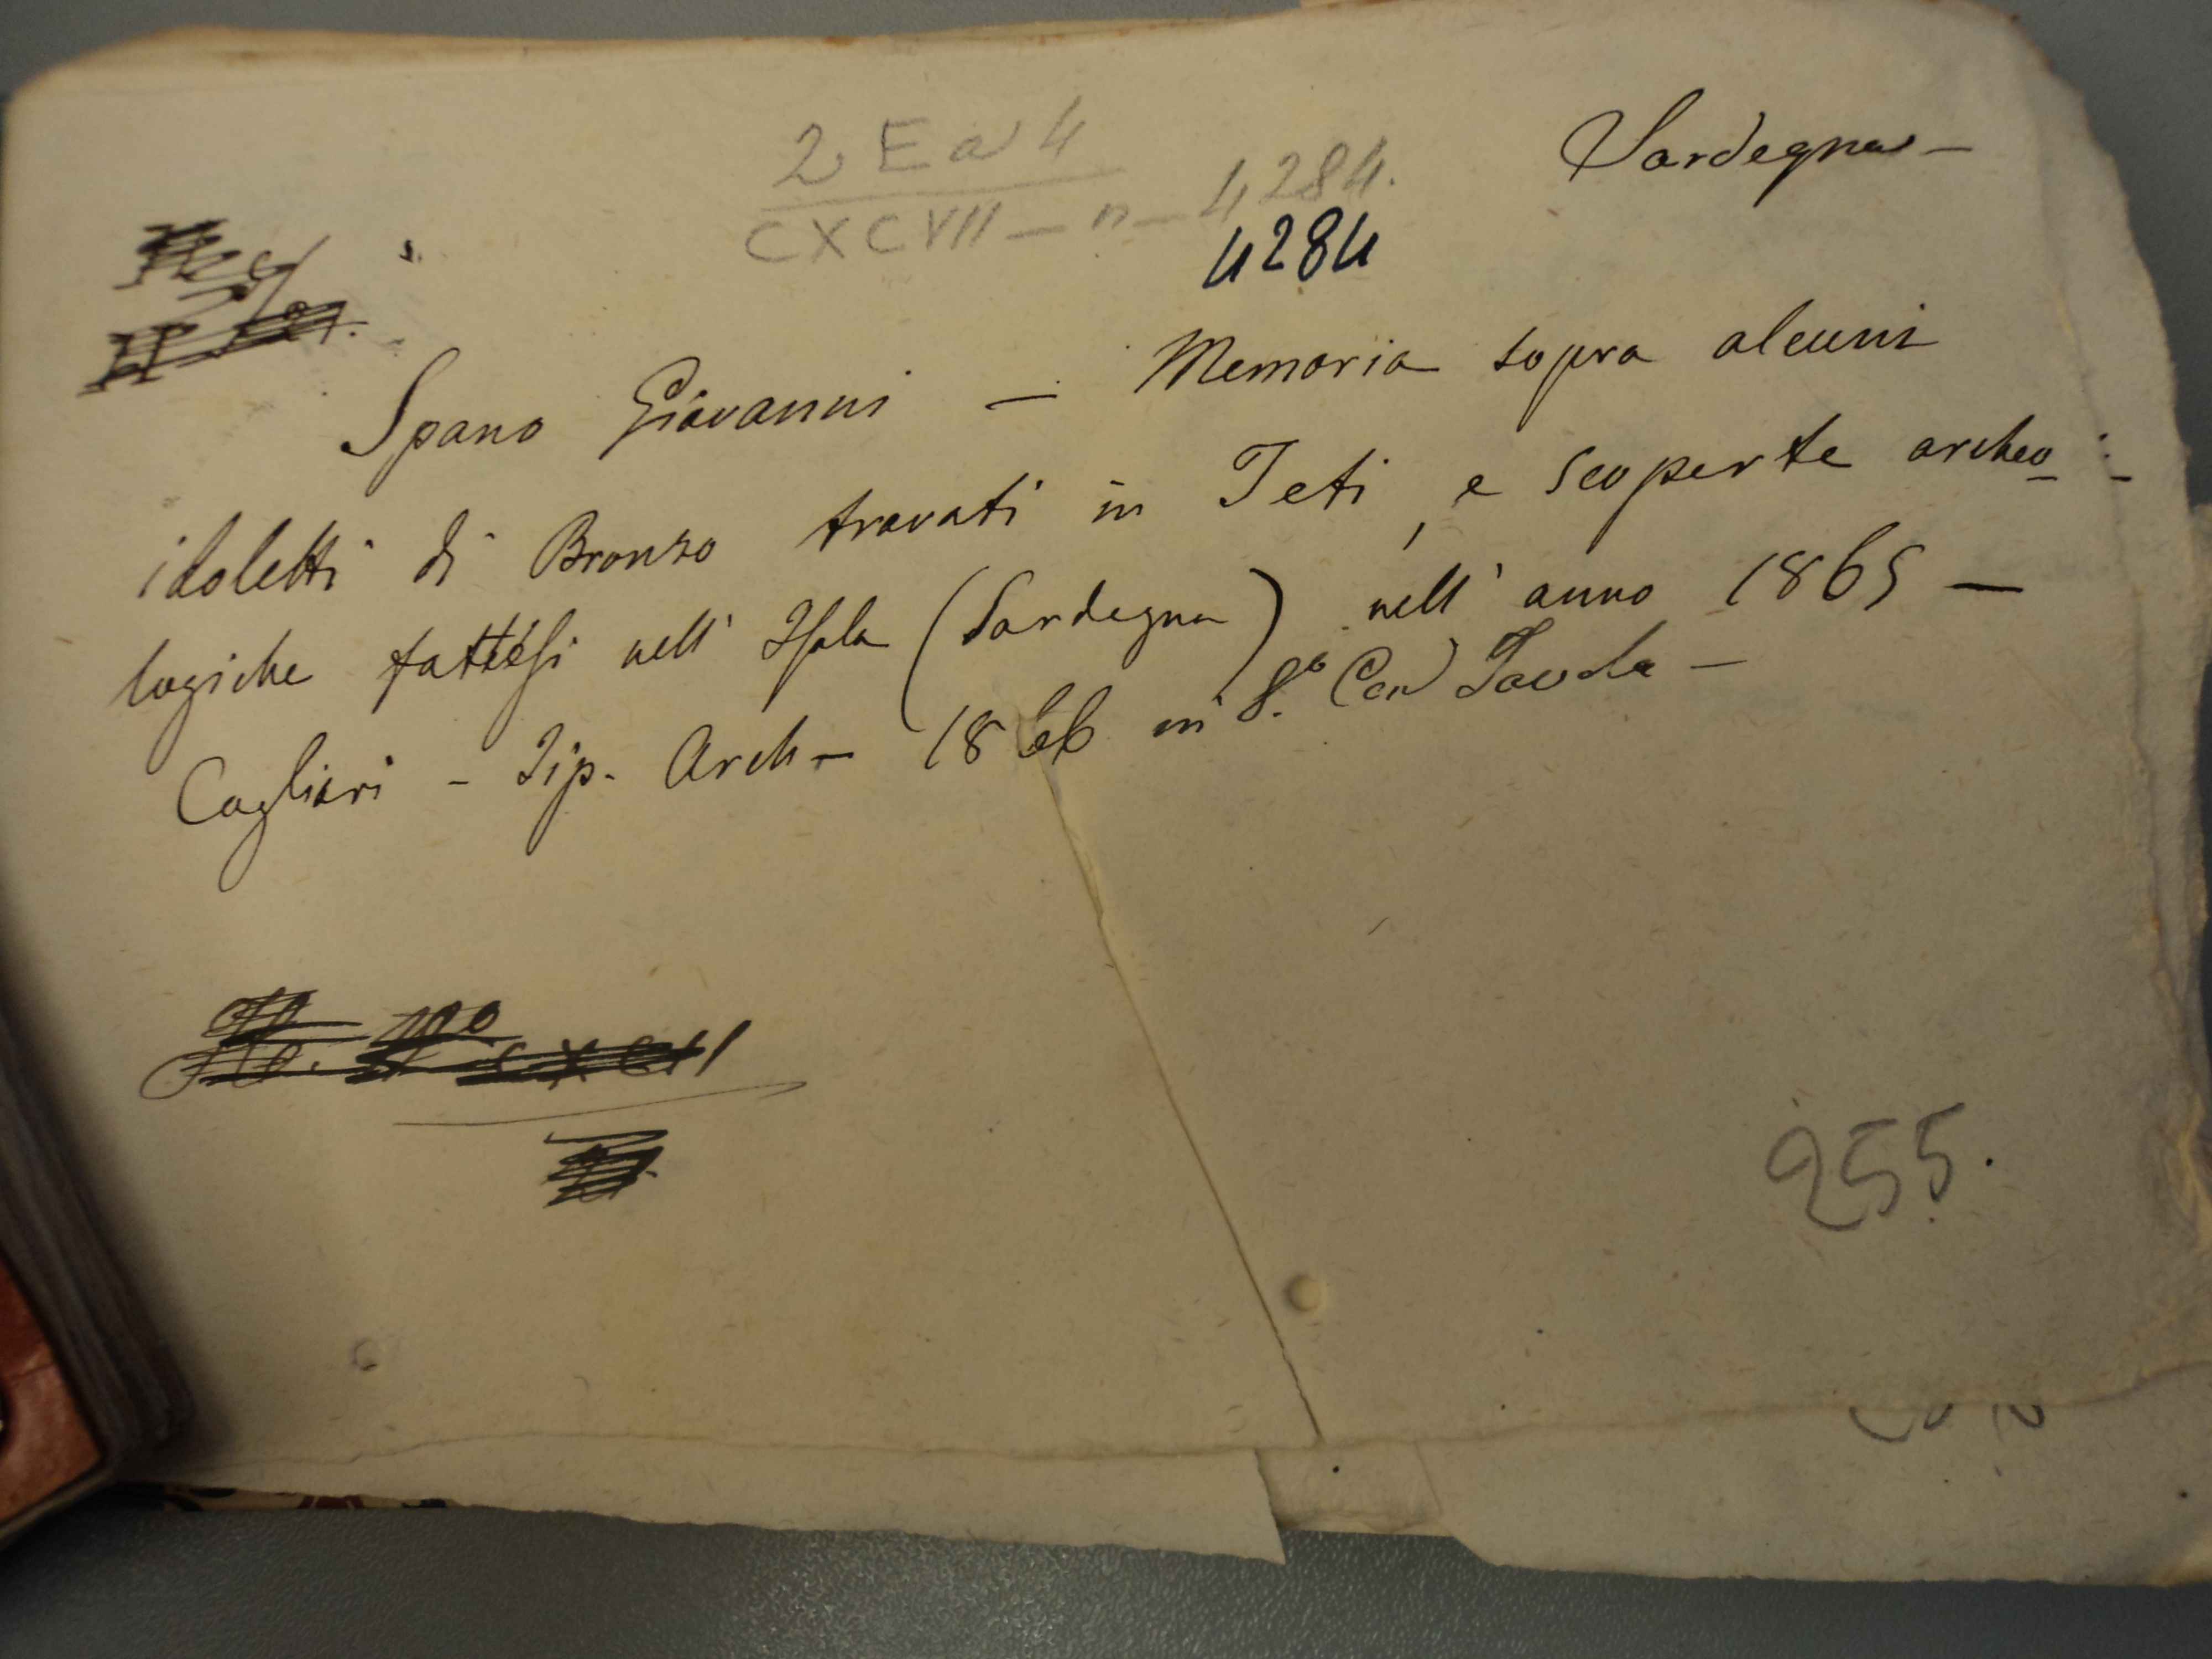 Sardegna —
2 Ea 4
CXCVII — n — 4284.
4284
Spano Giovanni — Memoria sopra alcuni
idoletti di Bronzo trovati in Teti, e scoperte archeo-
logiche fattesi nell' Isola (Sardegna) nell' anno 1865 —
Cagliari - Tip. Arch - 1866 in 8.° Con Tavola —
255.